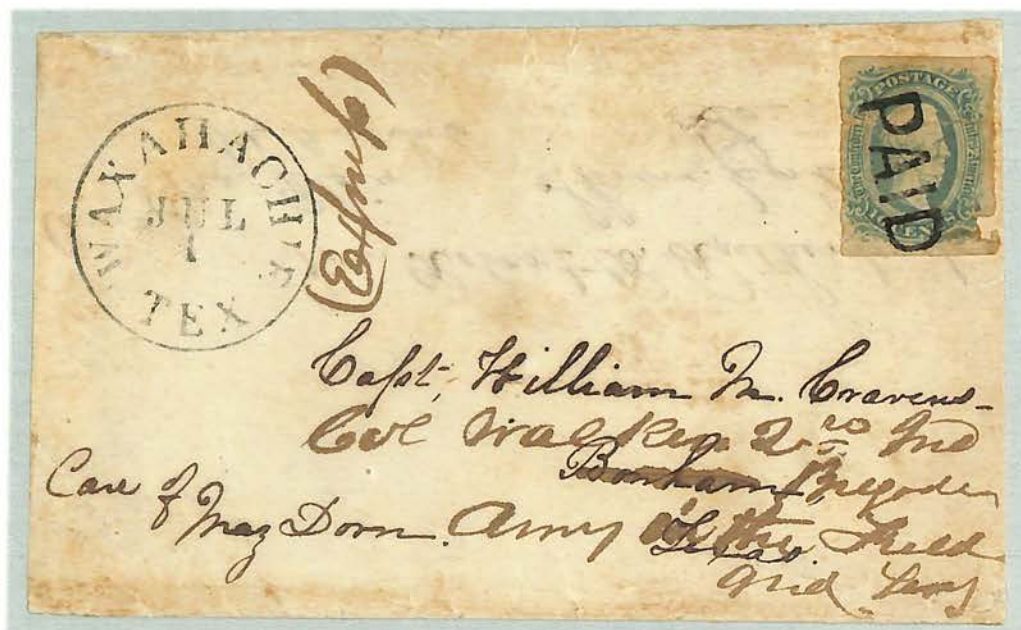 WAXAHACHIE
JUL
1
TEX
POSTAGE
PAID
Capt, William M. Cravens
Col Walker 2nd Ind
Bonham Brigade
Care of
Maj Dorn. Army in the Field
Texas
Ind Tery